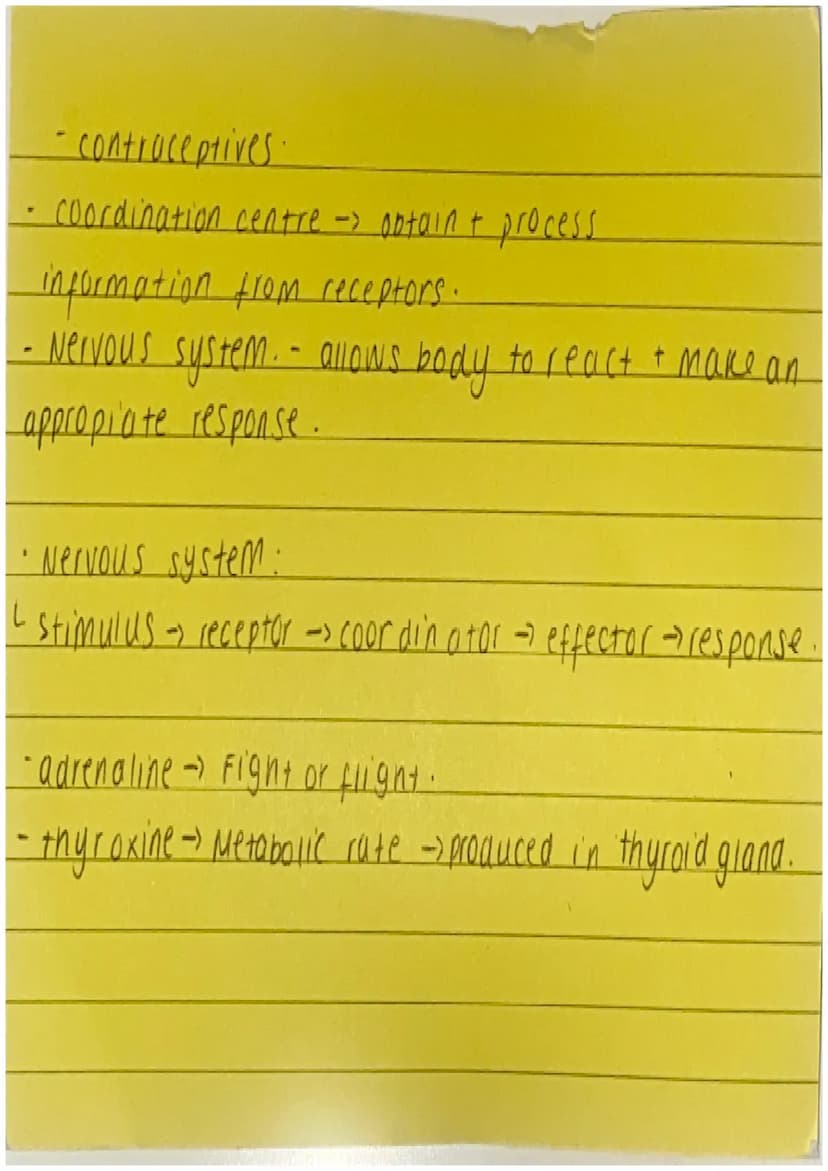 - contraceptives.
- coordination centre -> obtain + process
information from receptors.
- Nervous system. - allows body to react + make an
appropiate response.
• Nervous system:
L stimulus -> receptor -> coordinator -> effector -> response.
- adrenaline -> Fight or flight.
- thyroxine -> Metabolic rate -> produced in thyroid gland.